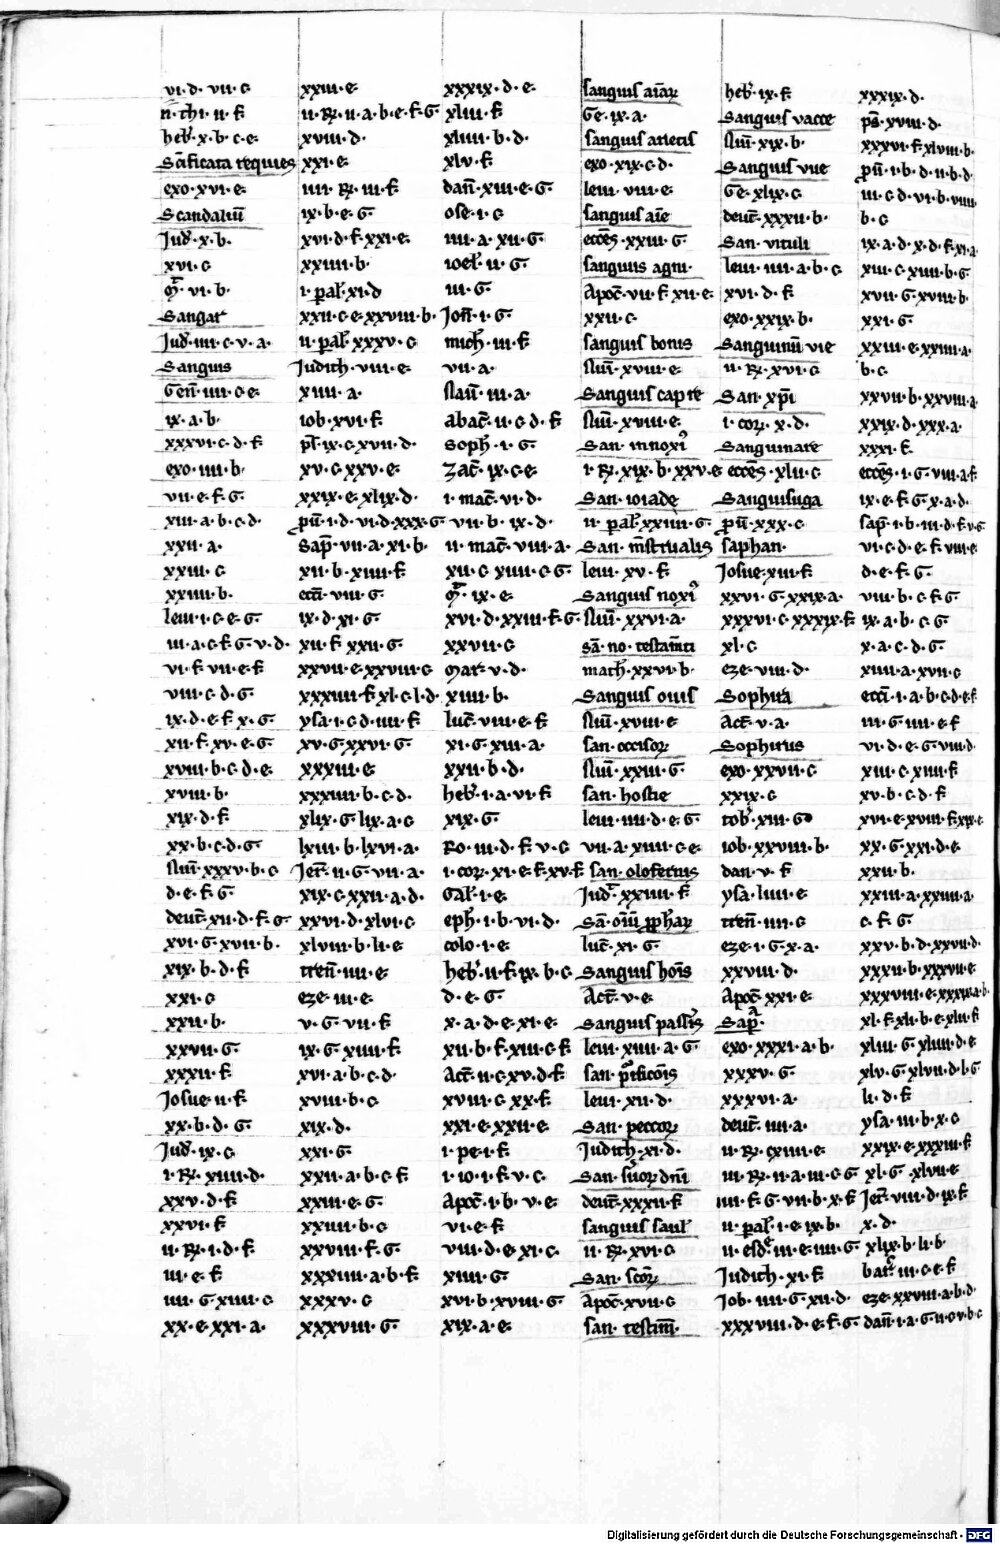 vi·d·vii·c
n·thi·ii·f
heb·x·b·c·e·
Sc̄ificata requies
exo·xvi·e·
Scandaliū
Jud·x·b·
xvi·c
mr̄·vi·b·
Sangar
Jud·iii·c·v·a·
Sanguis
Gen̄·iiii·c·e·
ix·a·b·
xxxvi·c·d·f
exo·iiii·b·
vii·e·f·G
xiii·a·b·c·d·
xxii·a·
xxiii·c
xxiiii·b·
leui·i·c·e·G
iii·a·c·f·G·v·d·
vi·f·vii·e·f
viii·c·d·G
ix·d·e·f·x·G
xii·f·xv·e·G
xviii·b·c·d·e
xviii·b·
xix·d·f
xx·b·c·d·G
nūi·xxxv·b·c
d·e·f·G
deut̄·xii·d·f·G
xvi·G·xvii·b·
xix·b·d·f
xxi·c
xxii·b·
xxvii·G
xxxii·f
Josue·ii·f
xx·b·d·G
Jud·ix·c
i·R̄·xiiii·d·
xxv·d·f
xxvi·f
ii·R̄·i·d·f
iii·e·f
iiii·G·xiiii·c
xx·e·xxi·a·
xxiii·e
ii·R̄·ii·a·b·e·f·G
xviii·d·
xxi·e
iiii·R̄·iii·f
ix·b·e·G
xvi·d·f·xxi·e
xxiiii·b·
i·pal·xi·d
xxii·c·e·xxviii·b·
ii·pal·xxxv·c
Judith·viii·e
xiii·a·
iob·xvi·f
ps̄·ix·c·xvii·d·
xv·c·xxv·e·
xxix·e·xlix·d·
pū·i·d·vi·d·xxx·G
Sap̄·vii·a·xi·b·
xii·b·xiiii·f
ecc̄i·viii·G
ix·d·xi·G
xii·f·xxii·G
xxvii·e·xxviii·c
xxxiiii·f·xl·c·l·d·
ysa·i·c·d·iiii·f
xv·G·xxvi·G
xxxiii·e
xxxiiii·b·c·d·
xlix·G·lix·a·c
lxiii·b·lxvi·a·
Jer̄·ii·G·vii·a·
xix·c·xxii·a·d·
xxvi·d·xlvi·c
xlviii·b·li·e
tren̄·iiii·e
eze·iii·e
v·G·vii·f
ix·G·xiiii·f
xvi·a·b·c·d·
xviii·b·c
xix·d·
xxi·G
xxii·a·b·c·f
xxiii·e·G
xxiiii·b·c
xxviii·f·G
xxxiiii·a·b·f
xxxv·c
xxxviii·G
xxxix·d·e·
xliii·f
xliiii·b·d·
xlv·f
dan̄·xiii·e·G
ose·i·c
iiii·a·xii·G
ioel·ii·G
iii·G
Jon̄·i·G
mich·iii·f
vii·a·
naū·iii·a·
abac̄·ii·c·d·f
soph·i·G
zac̄·ix·c·e
i·mac̄·vi·d·
vii·b·ix·d·
ii·mac̄·viii·a·
xii·c·xiiii·c·G
mr̄·ix·e·
xvi·d·xxiii·f·G
xxvii·c
mar·v·d·
xiiii·b·
luc̄·viii·e·f
xi·G·xiii·a·
xxii·b·d·
heb·i·a·vi·f
xix·G
Ro·iii·d·f·v·c
i·cor·xi·e·f·xv·f
Gal·i·e
eph·i·b·vi·d·
colo·i·e
heb·ii·f·ix·b·c
d·e·G
x·a·d·e·xi·e
xii·b·f·xiii·c·f
Act̄·ii·c·xv·d·f
xviii·c·xx·f
xxi·e·xxii·e
i·pe·i·f
i·io·i·f·v·c
Apoc̄·i·b·v·e
vi·e·f
viii·d·e·xi·c
xiiii·G
xvi·b·xviii·G
xix·a·e
sanguis aīar
Ge·ix·a·
sanguis arietis
exo·xix·c·d·
leui·viii·e
sanguis aīe
eccēs·xxiii·G
sanguis agni·
Apoc̄·vii·f·xii·e
xxii·c
sanguis bonis
nūi·xviii·e
Sanguis capre
nūi·xviii·e
San·innoxi
i·R̄·xix·b·xxv·e
San·ioiade
ii·pal·xxiiii·G
San·mēstrualis
leui·xv·f
Sanguis noxi
nūi·xxvi·a·
sā·no·testamti
math·xxvi·b·
Sanguis ouis
nūi·xviii·e
san·occisor
nūi·xxiii·G
san·hostie
leui·iiii·d·e·G
vii·a·xiiii·c·e
san·olofernis
Jud·xxiiii·f
Sā·oīu prophar
luc̄·xi·G
Sanguis hoīs
Act̄·v·e
Sanguis passis
leui·xiiii·a·G
san·p̄ificōis
leui·xii·d·
San·peccor
Judith·xi·d·
San·suor dn̄i
deut̄·xxxii·f
sanguis saul
ii·R̄·xvi·c
San·scōr
Apoc̄·xvii·c
san·testim̄·
heb·ix·f
Sanguis vacce
nūi·xix·b·
Sanguis vue
Ge·xlix·c
deut̄·xxxii·b·
San·vituli
leui·iiii·a·b·c
xvi·d·f
exo·xxix·b·
Sanguinū vie
ii·R̄·xvi·c
San·xp̄i
i·cor·x·d·
Sanguinare
eccēs·xlii·c
Sanguisuga
pū·xxx·c
saphan·
Josue·xiii·f
xxvi·G·xxix·a·
xxxvi·c·xxxix·f
xl·c
eze·viii·d·
Sophira
Act̄·v·a·
Sophirus
exo·xxvii·c
xxix·c
tob·xiii·G
iob·xxviii·b·
dan·v·f
ysa·liiii·e
tren̄·iiii·c
eze·i·G·x·a·
xxviii·d·
Apoc̄·xxi·e
Sap̄·
exo·xxxi·a·b·
xxxv·G
xxxvi·a·
deut̄·iiii·a·
ii·R̄·cxiii·e
iii·R̄·ii·a·iii·c·G
iiii·f·G·vii·b·x·f
ii·pal·i·e·ix·b·
ii·esd·iii·e·iiii·G
Judith·xi·f
Job·iiii·G·xii·d·
xxxviii·d·e·f·G
xxxix·d·
ps̄·xviii·d·
xxxvi·f·xlviii·b·
pū·i·b·d·ii·b·d·
iii·c·d·vi·b·viii
b·c
ix·a·d·x·d·f·xi·a
xiii·c·xiiii·b·G
xvii·G·xviii·b·
xxi·G
xxiii·e·xxiiii·a·
b·c
xxvii·b·xxviii·a
xxix·d·xxx·a·
xxxi·f
eccēs·i·G·viii·a·f
ix·e·f·G·x·a·d·
sap̄·i·b·iii·d·f·v·G
vi·c·d·e·f·viii·e
d·e·f·G
viii·b·c·f·G
ix·a·b·c·G
x·a·c·d·G
xiiii·a·xvii·c
ecc̄i·i·a·b·c·d·e·f
iii·G·iiii·e·f
vi·d·e·G·viii·d
xiii·c·xiiii·f
xv·b·c·d·f
xvi·e·xviii·f·xix·e
xx·G·xxi·d·e
xxii·b·
xxiii·a·xxiiii·a·
c·f·G
xxv·b·d·xxvii·d·
xxxii·b·xxxvii·e
xxxviii·e·xxxix·a·b
xl·f·xli·b·e·xlii·f
xliii·G·xliiii·d·e
xlv·G·xlvii·d·l·G
li·d·f
ysa·iii·b·x·c
xxix·e·xxxiii·f
xl·G·xlvii·e
Jer̄·viii·d·ix·f
x·d·
xlix·b·li·b·
bar·iii·c·e·f
eze·xxviii·a·b·d·
dan̄·i·a·G·ii·c·v·b·c
Digitalisierung gefördert durch die Deutsche Forschungsgemeinschaft - DFG